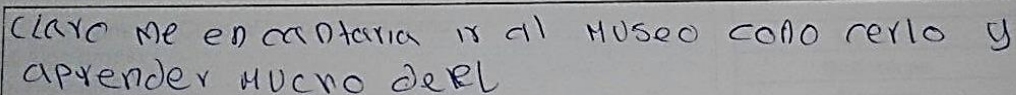 Claro me encantaria ir al Museo cono cerlo y
aprender Mucho de el